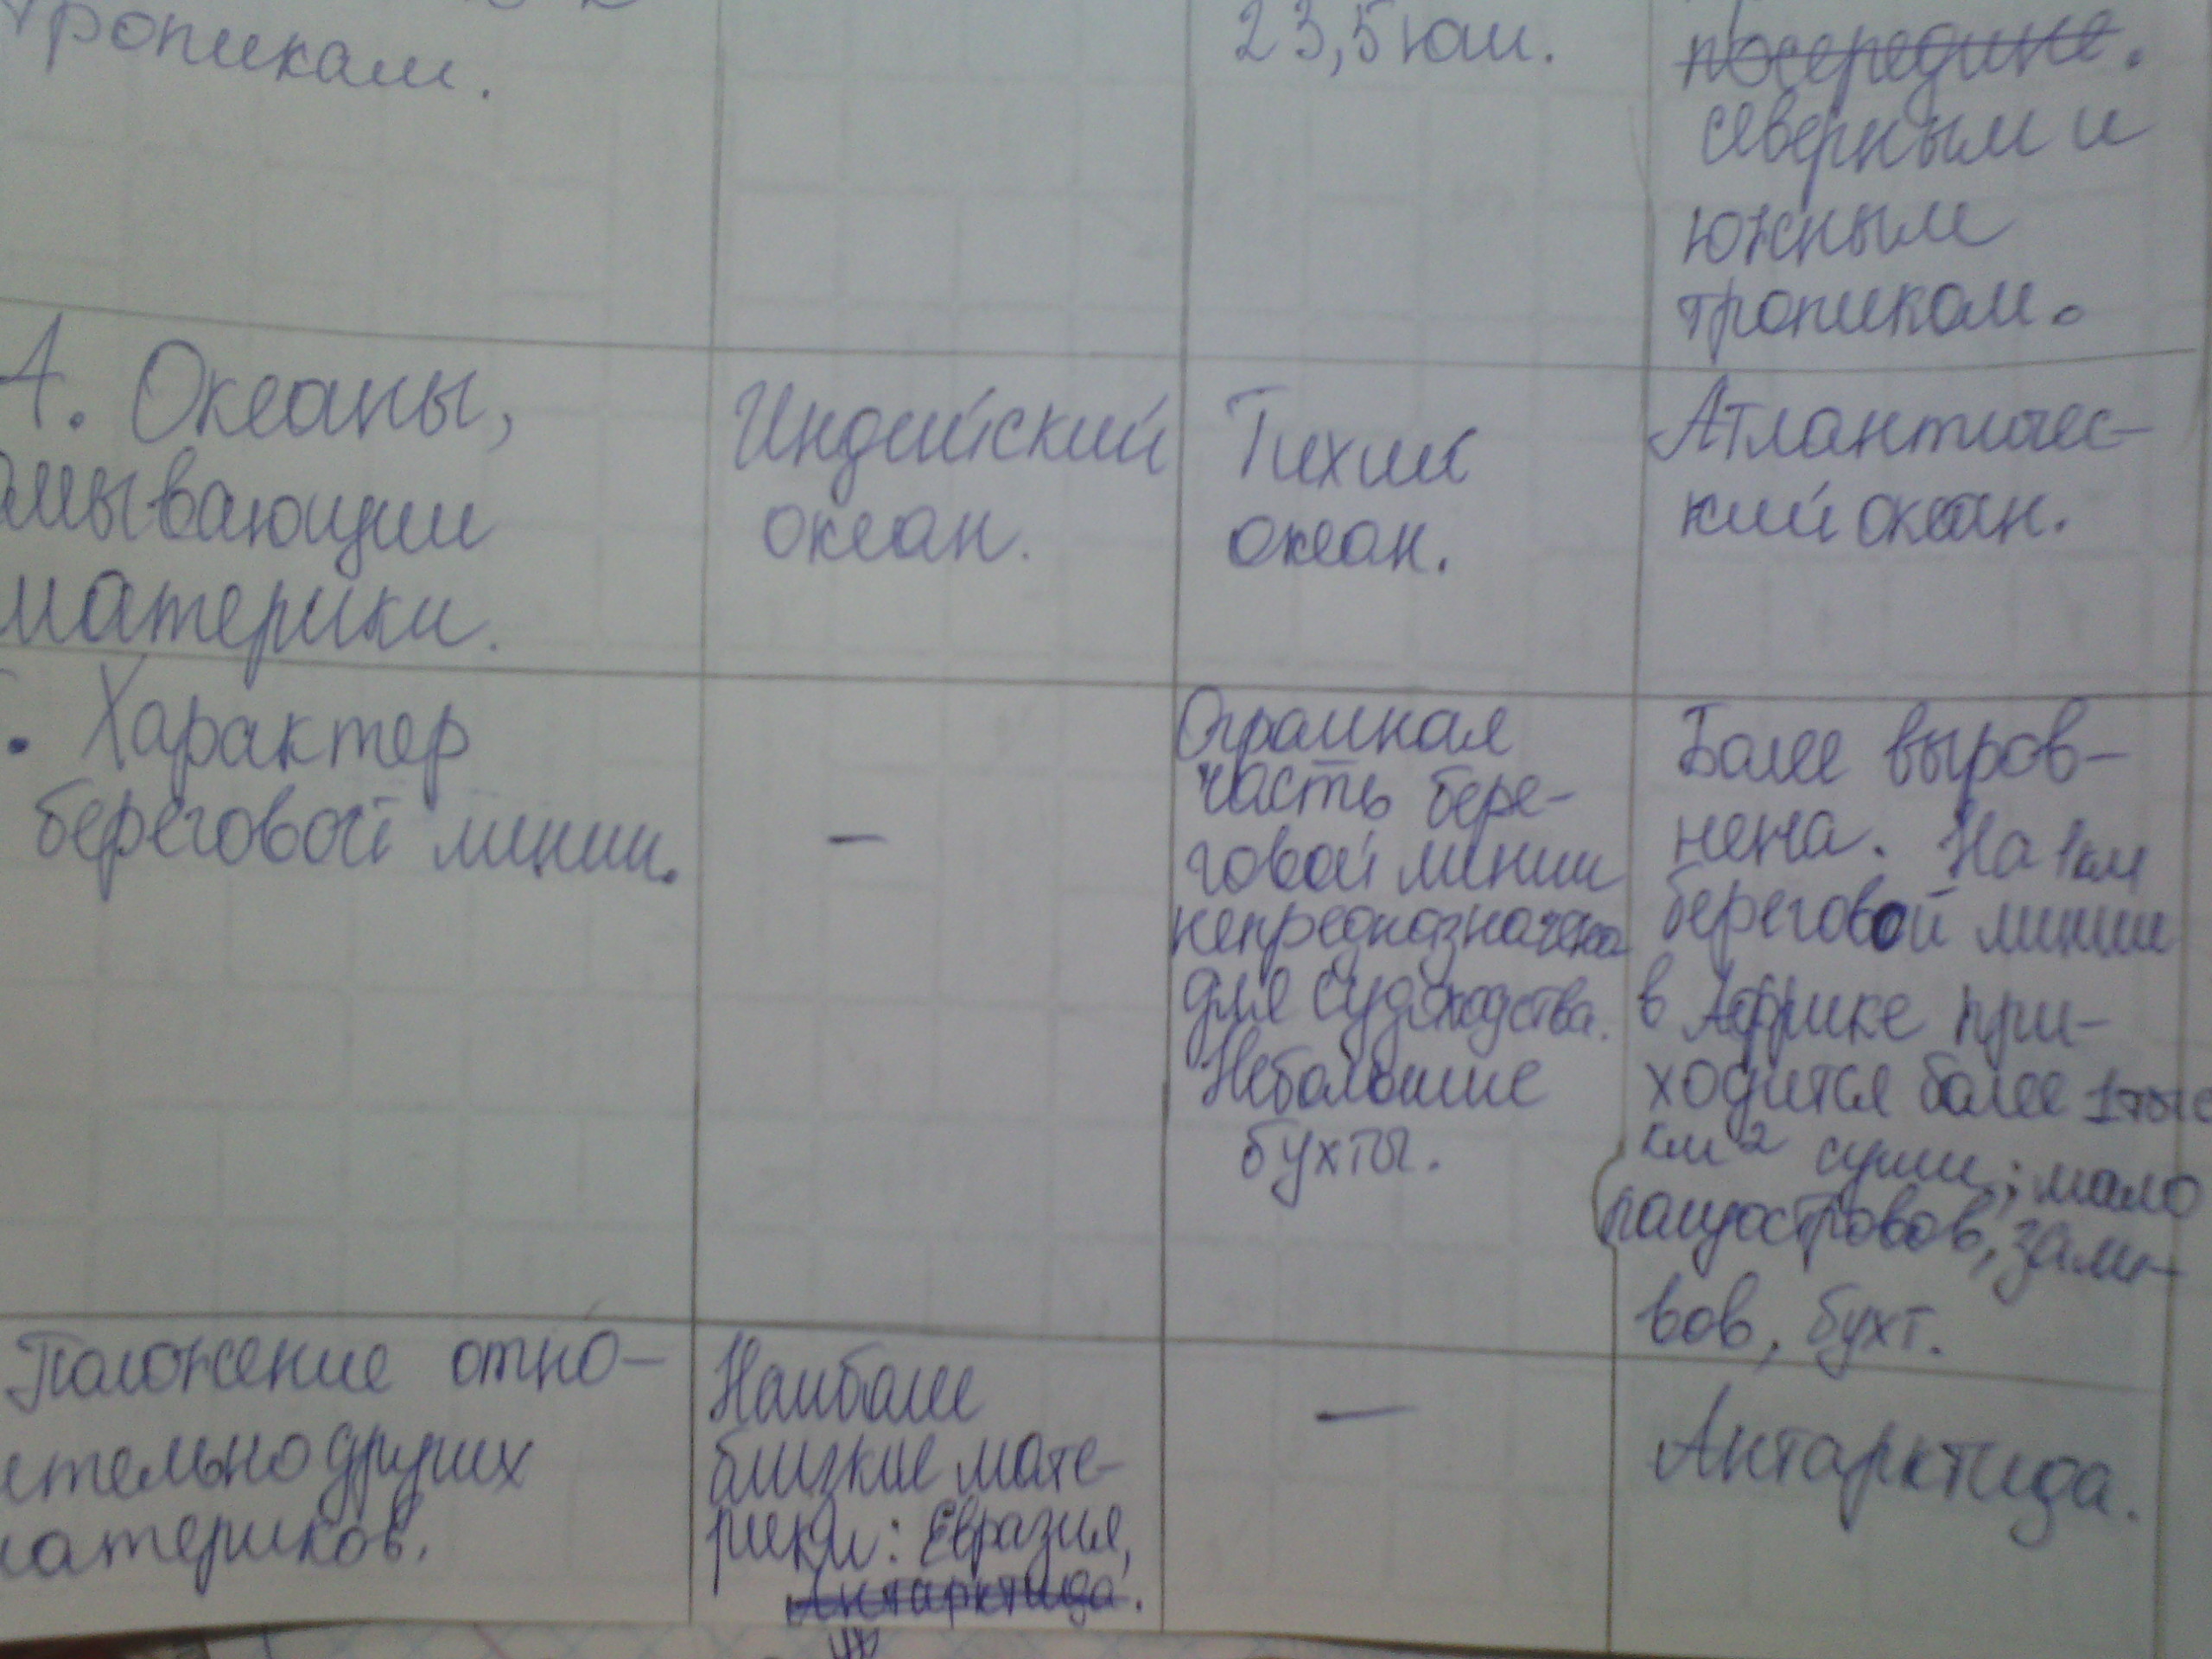 тропикам.
23,5 юш.
посередине.
северным и
южным
тропиком.
4. Океаны,
омывающии
материки.
Индийский
океан.
Тихий
океан.
Атлантичес-
кий океан.
. Характер
береговой линии.
–
Огромная
часть бере-
говой линии
непредназначена
для судоходства.
Небольшие
бухты.
Более выров-
нена. На 1км
береговой линии
в Африке при-
ходится более 1тыс
км² суши; мало
полуостровов, зали-
вов, бухт.
Положение отно-
ительно других
материков.
Наиболее
близкие мате-
рики: Евразия,
Антарктида.
–
Антарктида.